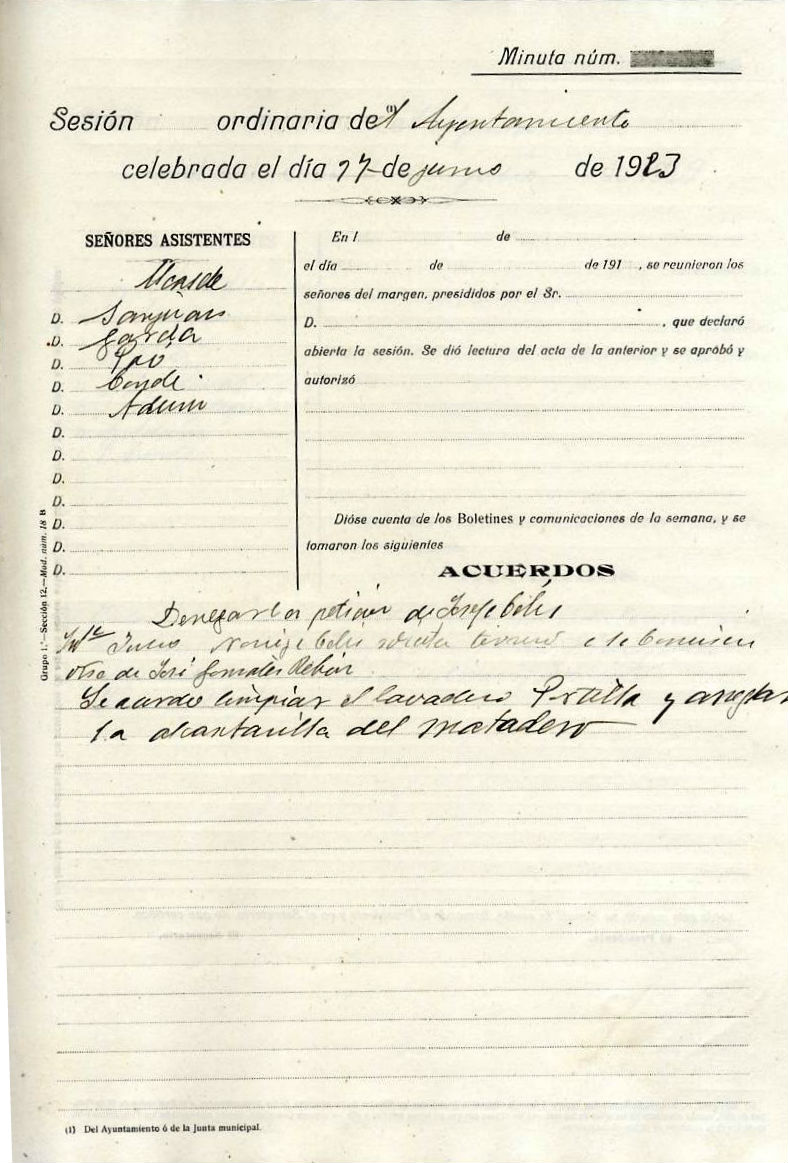 Minuta núm.
Sesión ordinaria del (1) Ayuntamiento
celebrada el día 27 de junio de 1923
SEÑORES ASISTENTES
Alcalde
D. Sanjuan
D. García
D.
D. Conde
D.
D.
D.
D.
D.
D.
D.
D.
En l de
el día de de 191 , se reunieron los
señores del margen, presididos por el Sr.
D. , que declaró
abierta la sesión. Se dió lectura del acta de la anterior y se aprobó y
autorizó
Dióse cuenta de los Boletines y comunicaciones de la semana, y se
tomaron los siguientes
ACUERDOS
Denegar la petición de Josefa Celis
Julio Celis solicita terreno a la Comisión
otra de José González
Se acordo limpiar el lavadero y arreglar
la alcantarilla del matadero
Grupo 1.º—Sección 12.—Mod. núm. 18 B
(1) Del Ayuntamiento ó de la Junta municipal.